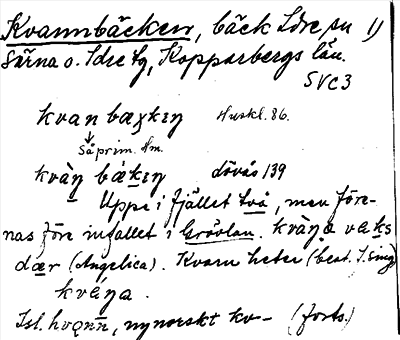 Kvannbäcken, bäck Idre sn 1)
Särna o. Idre tg, Kopparbergs län.
SVC3
kvan bæχkɪŋ Huskl. 86.
Så prim. Hm.
kvàŋ bǽkɪŋ dövås 139
Uppe i fjället två, men före-
nas före infallet i Grövlan. kvàŋa vaks
dær (Angelica). Kvann heter (best. f. sing)
kváŋa.
Isl. hvǫnn, nynorskt kv- (forts.)